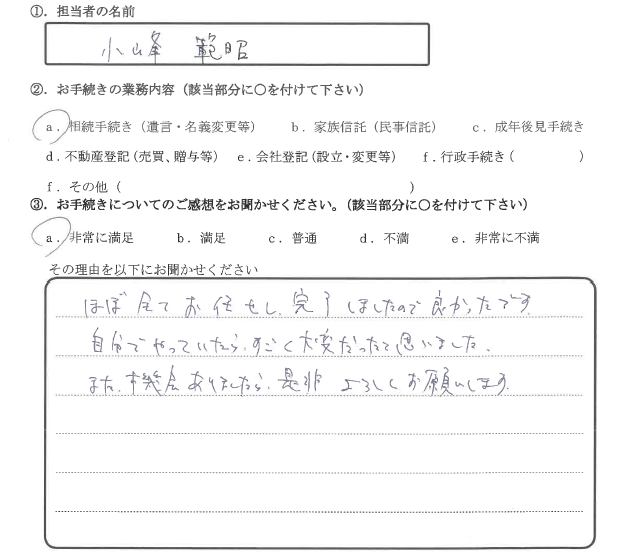 ①．担当者の名前
小峰 範昭
②．お手続きの業務内容（該当部分に〇を付けて下さい）
a．相続手続き（遺言・名義変更等） b．家族信託（民事信託） c．成年後見手続き
d．不動産登記（売買、贈与等） e．会社登記（設立・変更等） f．行政手続き（ ）
f．その他（ ）
③．お手続きについてのご感想をお聞かせください。（該当部分に〇を付けて下さい）
a．非常に満足 b．満足 c．普通 d．不満 e．非常に不満
その理由を以下にお聞かせください
ほぼ全てお任せし、完了しましたので良かったです。
自分でやっていたら、すごく大変だったと思いました。
また、機会ありましたら、是非よろしくお願いします。